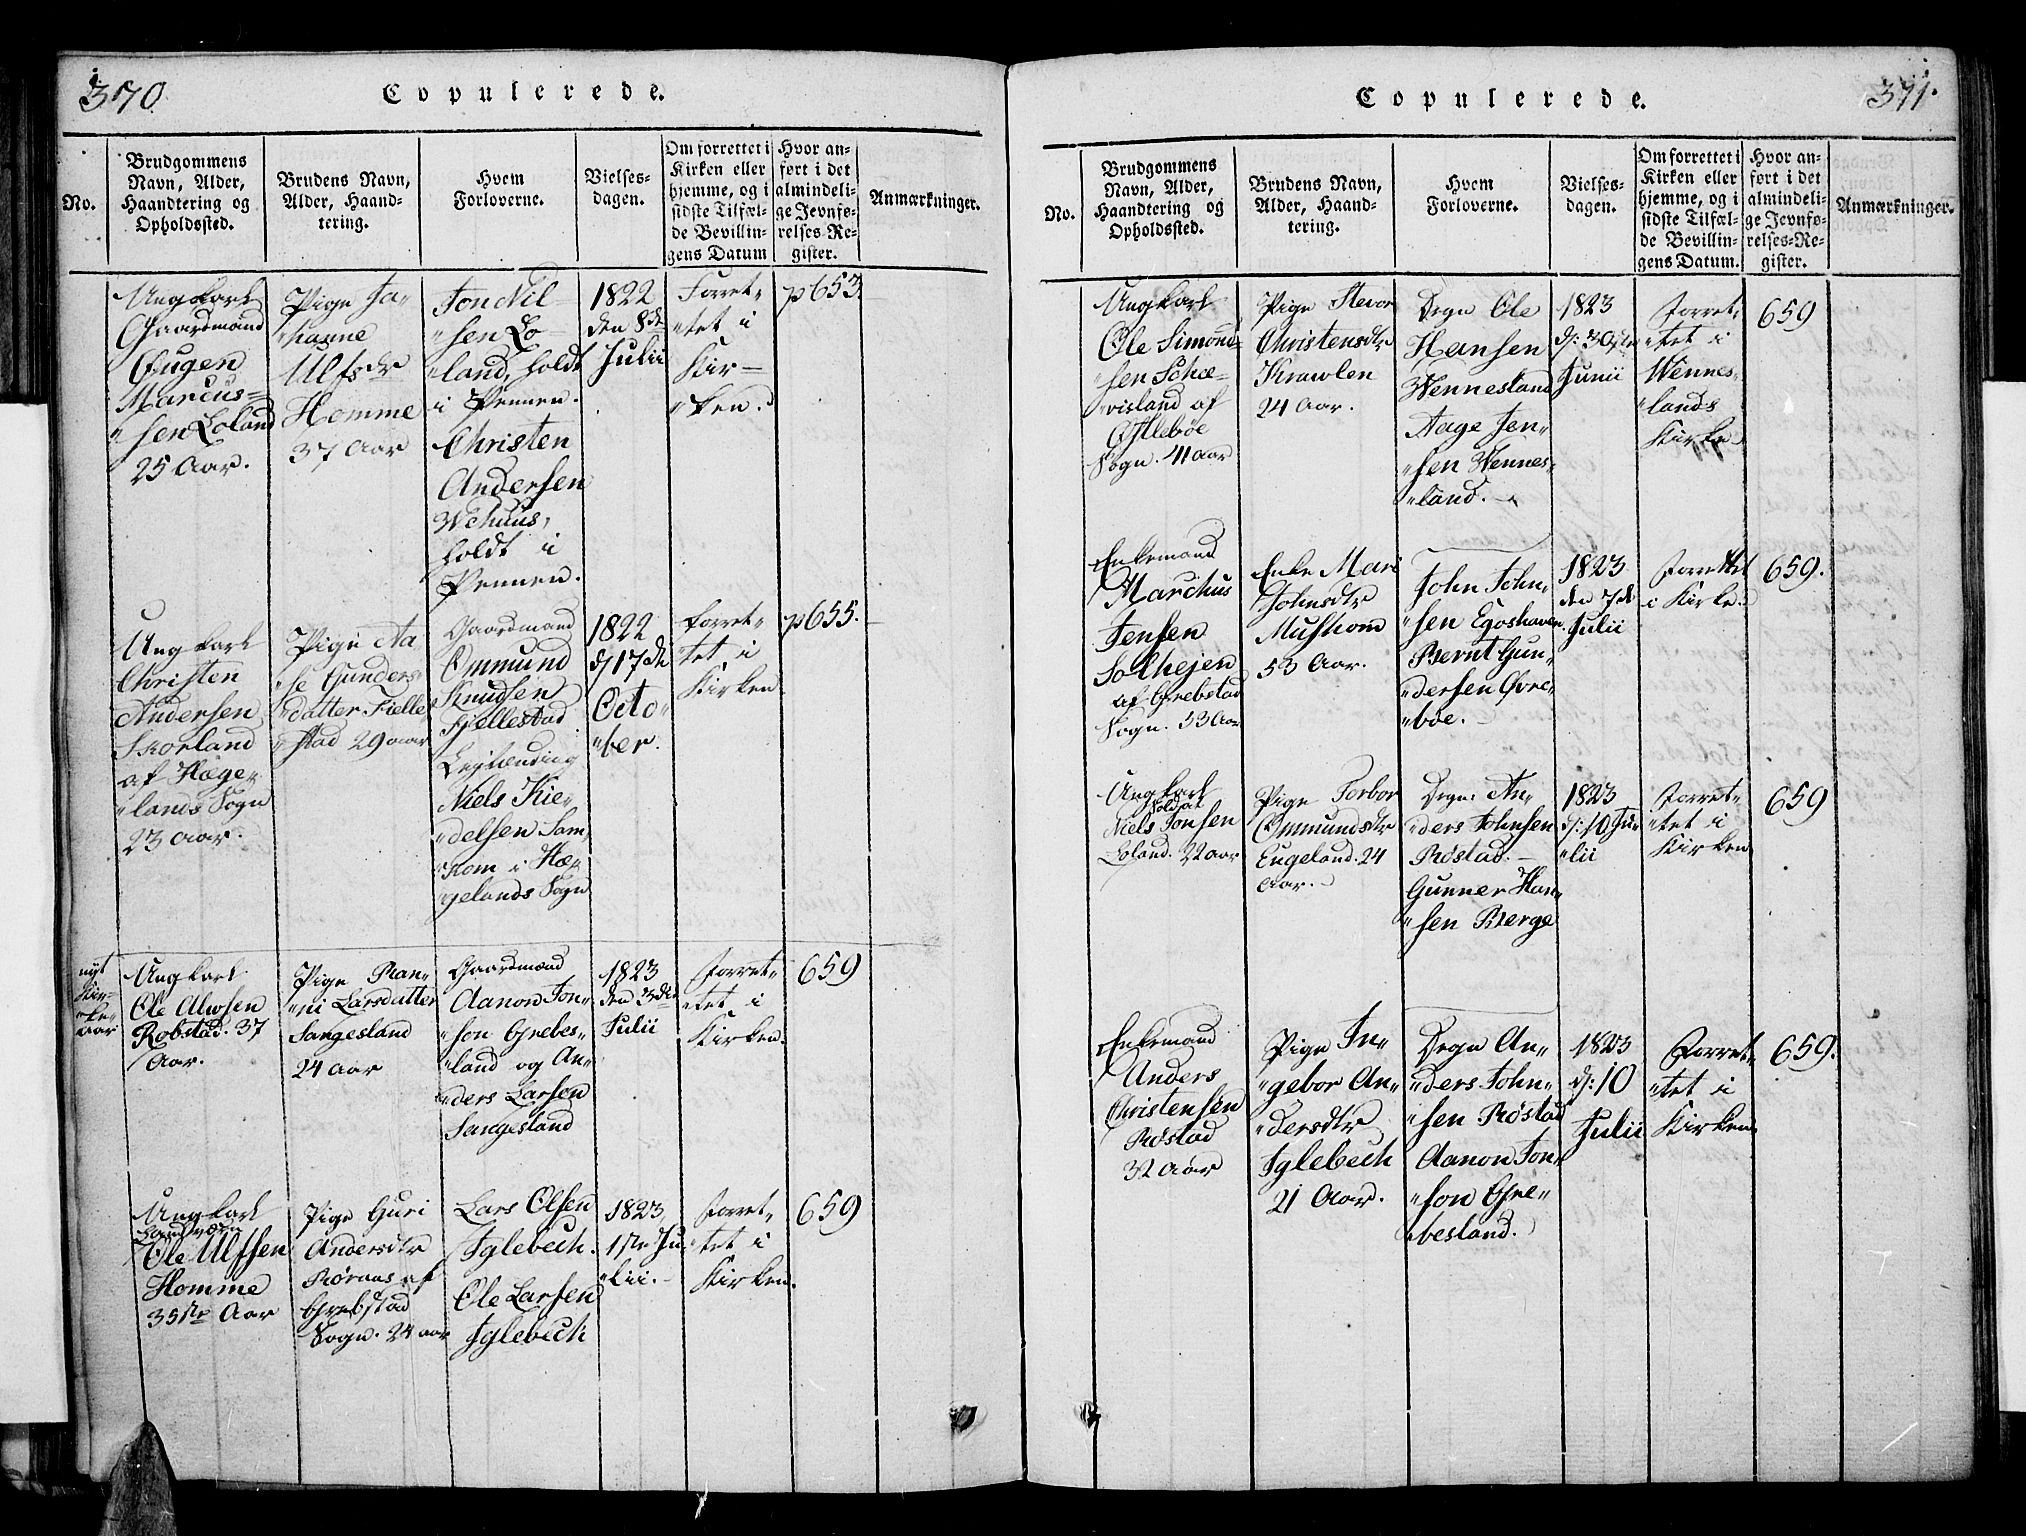 370.
Copulerede.
No.
Brudgommens
Navn, Alder,
Haandtering og
Opholdssted.
Brudens Navn,
Alder, Haand-
tering.
Hvem
Forloverne.
Vielses-
dagen.
Om forrettet i
Kirken eller
hjemme, og i
sidste Tilfæl-
de Bevillin-
gens Datum
Hvor an-
ført i det
almindeli-
ge Jevnfø-
relses-Re-
gister.
Anmærkninger.
Ungkarl
Gaardmand
Eugen
Marcus-
"sen Loland
25 Aar.
Pige Jo-
"hanne
Ulfsdr
Homme
37 Aar
Jon Nil-
"sen Lo-
"land, holdt
i Pennen.
Christen
Andersen
Wehuus,
holdt i
Pennen.
1822
den 8de
Julii
Forret-
"tet i
Kir-
"ken.
p 653.
Ungkarl
Christen
Andersen
Skorland
af Hæge-
"lands Sogn
23 Aar.
Pige Aa
"se Gunders
"datter Fielle
"stad 29 aar
Gaardmand
Ommund
Knudsen
Fjellestad
Niels Kie-
"delsen Sam-
"kom i Hæ-
"gelands Sogn
1822
d. 17de
Octo-
"ber.
forret-
"tet i
Kirken
p 655.
nyt
Kir-
"ke-
aar
Ungkarl
Ole Alwsen
Robstad. 37
Aar.
Pige Ran-
"ni Larsdatter
Sangesland
24 Aar
Gaardmænd
Aanon Jon-
"son Grebes-
"land og An-
"ders Larsen
Sangesland
1823
den 3die
Julii
Forret-
"tet i
Kirken.
659
Ungkarl
Ole Ulfsen
Homme
35 Aar
Pige Guri
Andersdtr
Røraas af
Grebstad
Sogn. 24 aar
Lars Olsen
Iglebech.
Ole Larsen
Iglebech
1823,
1ste Ju-
"lii.
Forret-
"tet i
Kirken.
659
371.
Copulerede.
No.
Brudgommens
Navn, Alder,
Haandtering og
Opholdssted.
Brudens Navn,
Alder, Haand-
tering.
Hvem
Forloverne.
Vielses-
dagen.
Om forrettet i
Kirken eller
hjemme, og i
sidste Tilfæl-
de Bevillin-
gens Datum.
Hvor an-
ført i det
almindeli-
ge Jevnfø-
relses-Re-
gister.
Anmærkninger.
Ungkarl
Ole Simond-
"sen Schæ-
"visland af
Øflebøe
Sogn. 41 aar
Pige Stevor
Christensdtr
Krawlen
24 Aar.
Degn Ole
Hansen
Wennesland
Aage Jen-
"sen Wennes-
"land.
1823
d: 30te
Junii
Forret-
"tet i
Wennes-
"lands
Kirke
659
Enkemand
Marchus
Jensen
Solhejen
af Grebstad
Sogn. 53 Aar
Enke Mari
Johnsdtr
Mushom
53 Aar.
John John-
"sen Egoshaven
Bernt Gun-
"dersen Øvre-
"bøe.
1823
den 7de
Julii
Forrettet
i Kirken.
659.
Ungkarl
Soldat
Niels Jonsen
Loland. 22 aar
Pige Torbor
Ommundsdtr
Eugeland. 24
Aar.
Degn An-
"ders Johnsen
Røstad.
Gunner Han-
"sen Berge
1823
d: 10 Ju-
"lii
Forret-
"tet i
Kirken
659
Enkemand
Anders
Christensen
Røstad
32 Aar
Pige In-
"gebor An-
"dersdtr
Iglebech
21 Aar.
Degn An-
"ders John-
"sen Røstad
Aanon Jon-
"son Gre-
"besland.
1823
d: 10
Julii
Forret-
"tet i
Kirken
659.